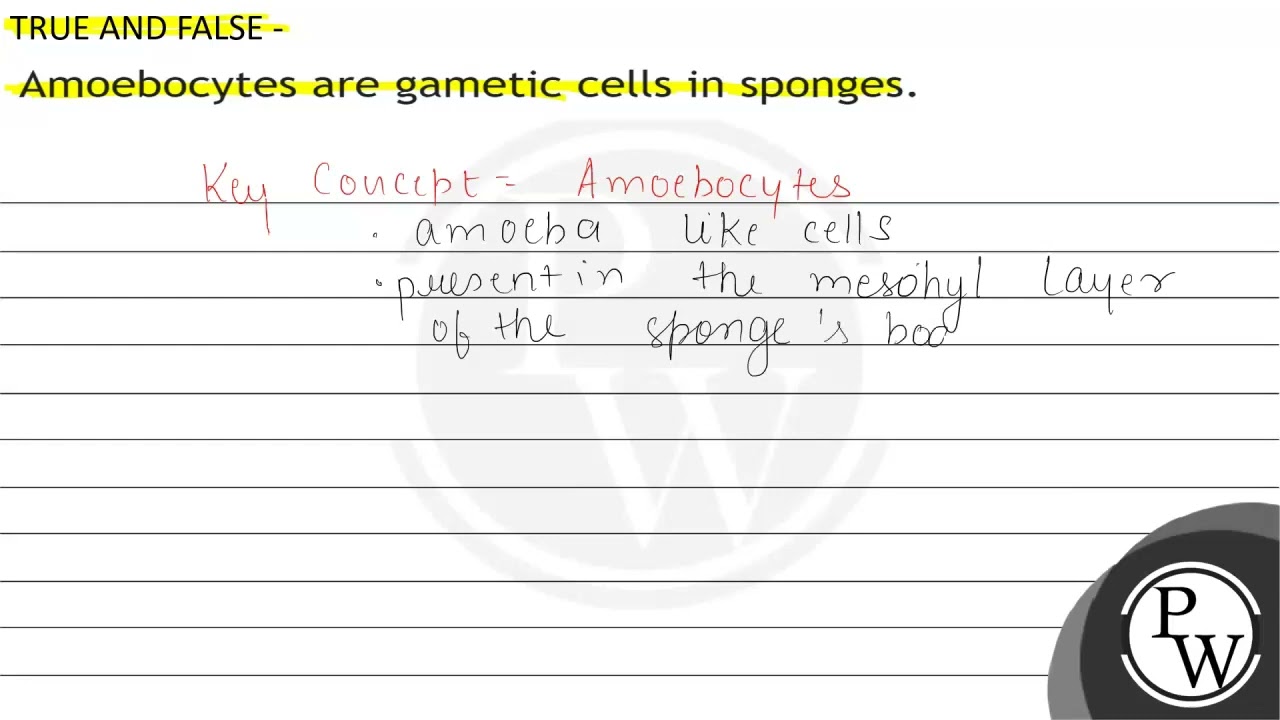 TRUE AND FALSE -
Amoebocytes are gametic cells in sponges.
Key Concept = Amoebocytes
• amoeba like cells
• present in the mesohyl layer
of the sponge's bod
PW
PW